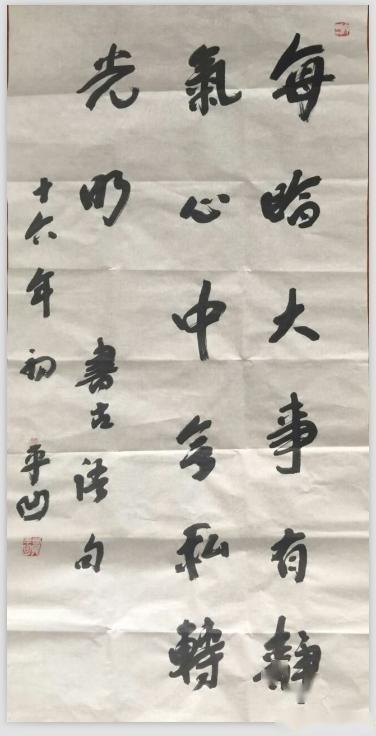 每臨大事有靜
氣心中無私轉
光明 書古語句
十六年初 平凹